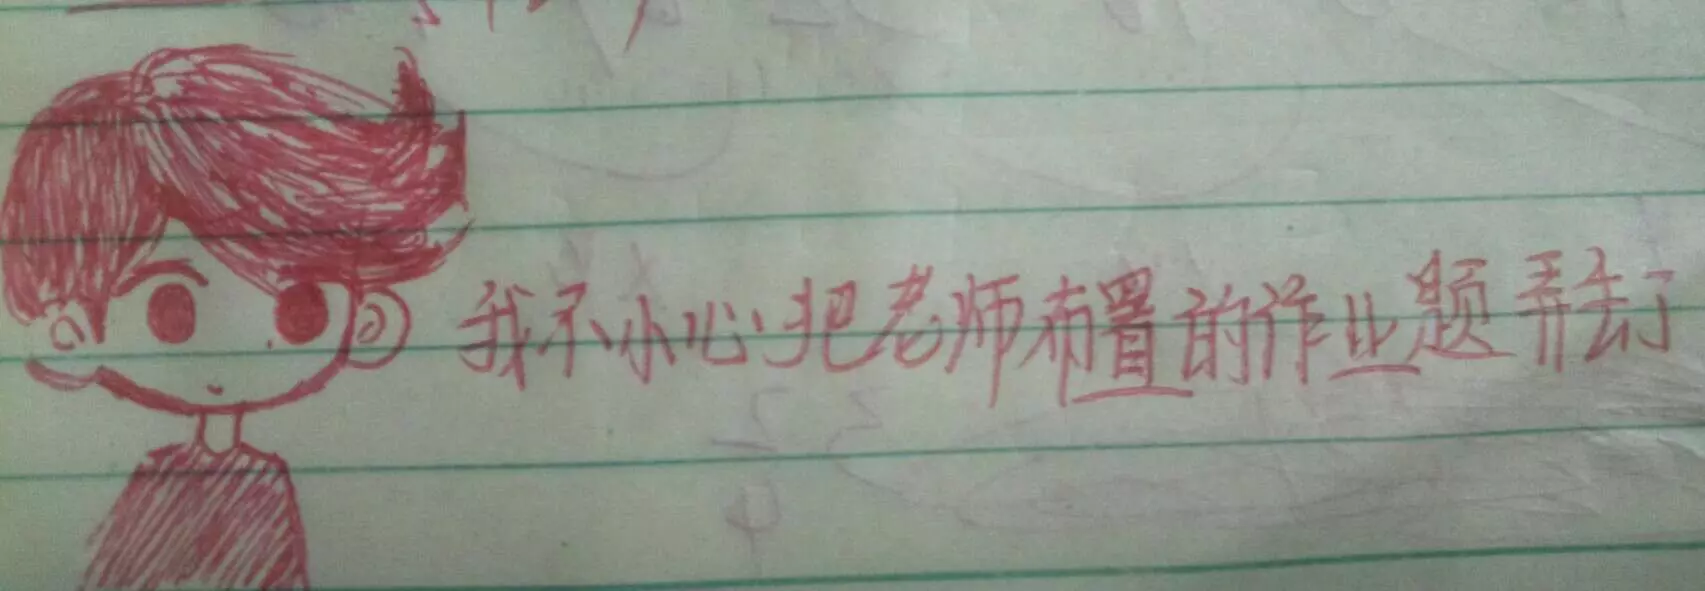 我不小心把老师布置的作业题弄丢了